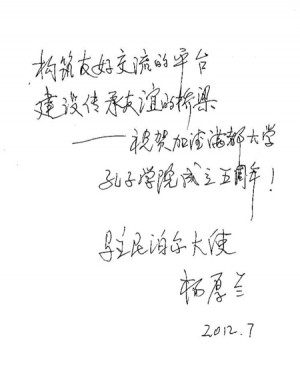 构筑友好交流的平台
建设传承友谊的桥梁
——祝贺加德满都大学
孔子学院成立五周年!
驻尼泊尔大使
杨厚兰
2012.7